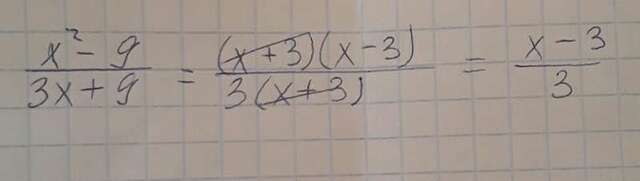 x² - 9 / 3x + 9 = (x + 3)(x - 3) / 3(x + 3) = x - 3 / 3